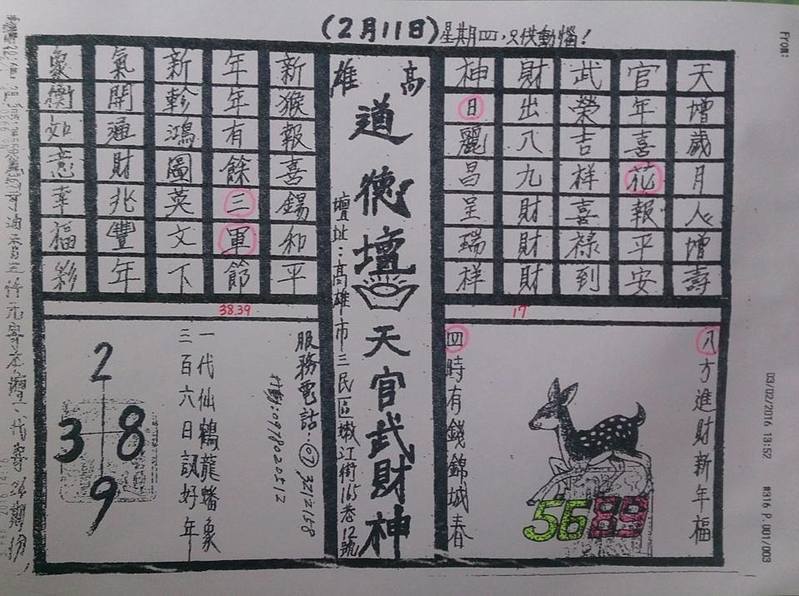 (2月11日)星期四,只供動惱!
天增歲月人增壽
官年喜花報平安
武榮吉祥喜祿到
財出八九財財財
神日麗昌呈瑞祥
17
八方進財新年福
四時有錢錦城春
56 89
高雄
道德壇
天官武財神
壇址:高雄市三民區嫩江街165巷12號
新猴報喜錫和平
年年有餘三軍節
新幹鴻圖英文下
氣開通財兆豐年
象衡如意幸福彩
38.39
服務電話:(07)3212158
行動:0978020512
一代仙鶴龍蟠象
三百六日訊好年
2
3 8
9
From:
03/02/2016 13:52
#316 P.001/003